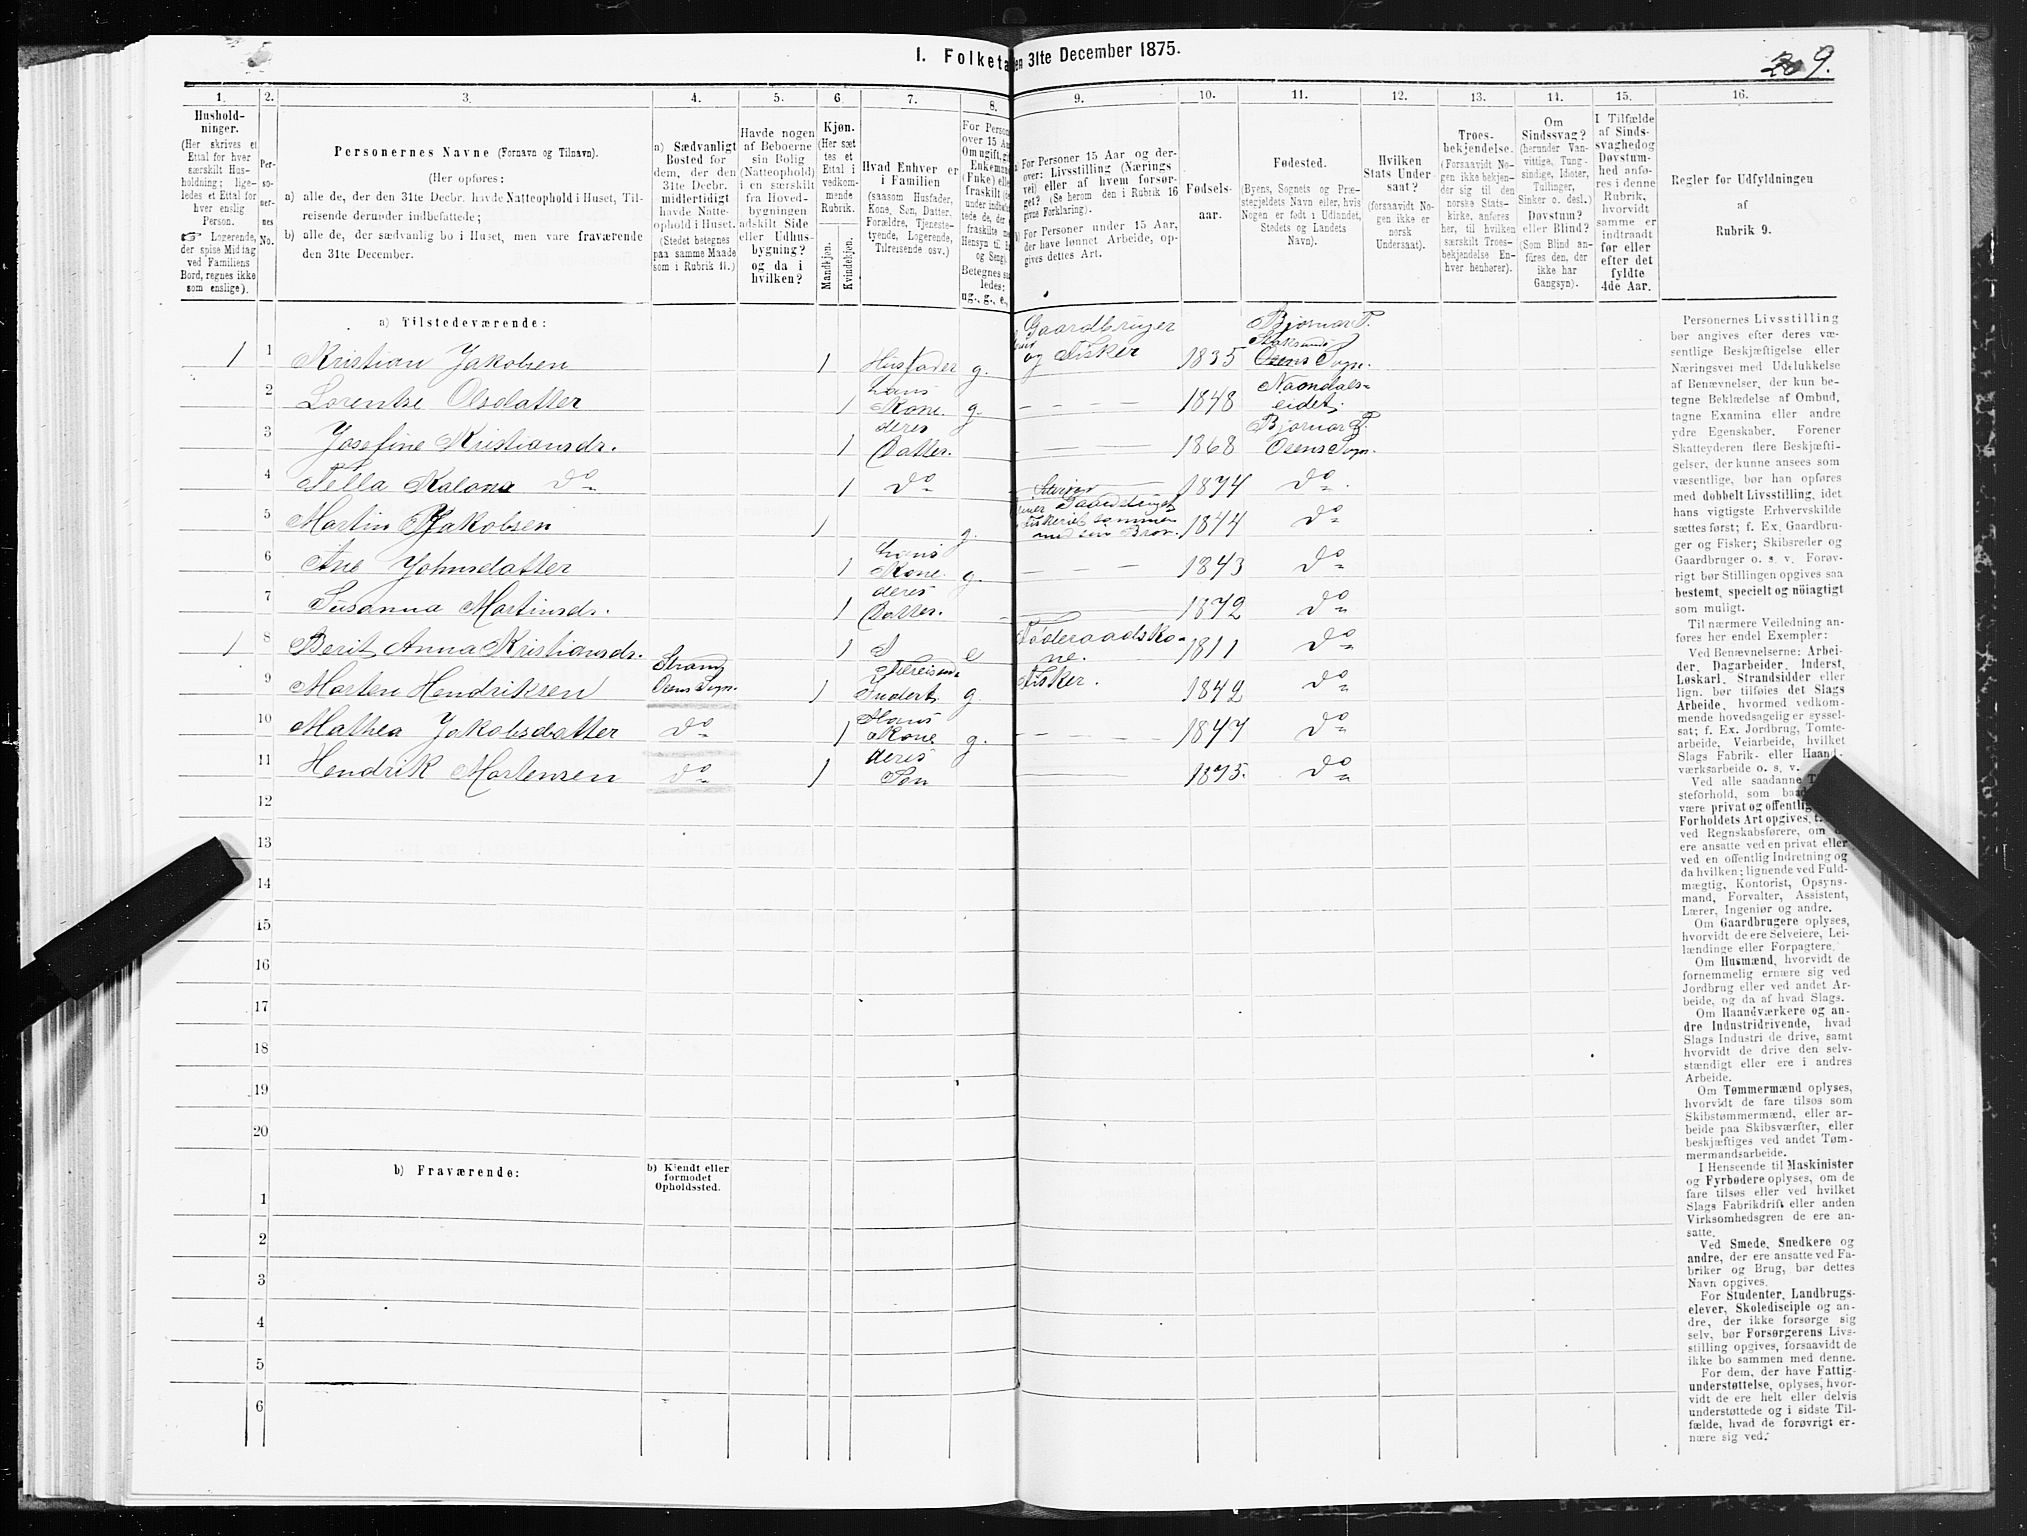 I. Folketa en 31te December 1875.
9.
1. 2. 3. 4. 5. 6. 7. 8. 9. 10. 11. 12. 13. 14. 15. 16.
Hushold-
ninger.
(Her skrives et
Ettal for hver
særskilt Hus-
holdning; lige-
ledes et Ettal for
hver enslig
Person.
☞ Logerende,
der spise Middag
ved Familiens
Bord, regnes ikke
som enslige).
Per-
so-
ner-
nes
No.
Personernes Navne (Fornavn og Tilnavn).
(Her opføres:
a) alle de, der den 31te Decbr. havde Natteophold i Huset, Til-
reisende derunder indbefattede;
b) alle de, der sædvanlig bo i Huset, men vare fraværende
den 31te December.
a) Sædvanligt
Bosted for
dem, der den
31te Decbr.
midlertidigt
havde Natte-
ophold i Huset.
(Stedet betegnes
paa samme Maade
som i Rubrik 11.)
Havde nogen
af Beboerne
sin Bolig
(Natteophold)
i en særskilt
fra Hoved-
bygningen
adskilt Side
eller Udhus-
bygning?
og da i
hvilken?
Kjøn.
(Her sæt-
tes et
Ettal i
vedkom-
mende
Rubrik.
Mandkjøn.
Kvindekjøn.
Hvad Enhver er
i Familien
(saasom Husfader,
Kone, Søn, Datter,
Forældre, Tjeneste-
tyende, Logerende,
Tilreisende osv.)
For Person
over 15 Aa
Om ugift, gi
Enkeman
(Enke) elle
fraskilt
Betegnes sa
ledes:
ug., g., e.,
a) For Personer 15 Aar og der-
over: Livsstilling (Nærings-
vei) eller af hvem forsør-
get? (Se herom den i Rubrik 16
givne Forklaring).
b) For Personer under 15 Aar,
der have lønnet Arbeide, op-
gives dettes Art.
Fødsels-
aar.
Fødested.
(Byens, Sognets og Præ-
stegjeldets Navn eller, hvis
Nogen er født i Udlandet,
Stedets og Landets
Navn).
Hvilken
Stats Under-
saat?
(forsaavidt No-
gen ikke er
norsk
Undersaat).
Troes-
bekjendelse.
(Forsaavidt No-
gen ikke bekjen-
der sig til den
norske Stats-
kirke, anføres
her, til hvilken
særskilt Troes-
bekjendelse En-
hver henhører).
Om
Sindssvag?
(herunder Van-
vittige, Tung-
sindige, Idioter,
Tullinger,
Sinker o. desl.)
Døvstum?
eller Blind?
(Som Blind an-
føres den, der
ikke har
Gangsyn).
I Tilfælde
af Sinds-
svaghed og
Døvstum-
hed anfø-
res i denne
Rubrik,
hvorvidt
samme er
indtraadt
før eller
efter det
fyldte
4de Aar.
Regler for Udfyldningen
af
Rubrik 9.
a) Tilstedeværende:
1 1 Kristian Jakobsen 1 Husfader g. Gaardbruger og Fisker 1835 Bjørnør P. Osens Sogn.
2 Lorentse Olsdatter 1 hans Kone. g. — — — 1848 Namdals-eidet.
3 Josefine Kristiansdr. 1 deres Datter. — — 1868 Bjørnør P. Osens Sogn.
4 Pella Kalona do 1 do — 1874 do.
5 Martin Jakobsen 1 g. Gaardbruget Fiskeriet sammen med sin Bror. 1844 do
6 Ane Johnsdatter 1 hans Kone. g. — — — 1843 do
7 Susanna Martinsdr. 1 deres Datter. — — 1872 do
1 8 Berit Anna Kristiansdr. 1 e Føderaadskone. 1811 do
9 Morten Hendriksen Strand Osens Sogn. 1 Inderst g Fisker. 1842 do
10 Mathea Jakobsdatter do 1 Hans Kone g. — — — 1847 do
11 Hendrik Mortensen do 1 deres Søn — 1875. do
12
13
14
15
16
17
18
19
20
b) Fraværende:
b) Kjendt eller
formodet
Opholdssted.
1
2
3
4
5
6
Personernes Livsstilling
bør angives efter deres væ-
sentlige Beskjæftigelse eller
Næringsvei med Udelukkelse
af Benævnelser, der kun be-
tegne Beklædelse af Ombud,
tagne Examina eller andre
ydre Egenskaber. Forener
Skatteyderen flere Beskjæfti-
gelser, der kunne ansees som
væsentlige, bør han opføres
med dobbelt Livsstilling, idet
hans vigtigste Erhvervskilde
sættes først; f. Ex. Gaardbru-
ger og Fisker; Skibsreder og
Gaardbruger o. s. v. Forøv-
rigt bør Stillingen opgives saa
bestemt, specielt og nöiagtigt
som muligt.
Til nærmere Veiledning an-
føres her endel Exempler:
Ved Benævnelserne: Arbei-
der, Dagarbeider, Inderst,
Løskarl, Strandsidder eller
lign. bør tilføies det Slags
Arbeide, hvormed vedkom-
mende hovedsagelig er syssel-
sat; f. Ex. Jordbrug, Tomte-
arbeide, Veiarbeide, hvilket
Slags Fabrik- eller Haand-
værksarbeide o. s. v.
Ved alle saadanne
steforhold, som baa
være privat og offentlig
Forholdets Art opgives,
ved Regnskabsførere, om
ere ansatte ved en privat eller
ved en offentlig Indretning og
da hvilken; lignende ved Fuld-
mægtig, Kontorist, Opsyns-
mand, Forvalter, Assistent,
Lærer, Ingeniør og andre.
Om Gaardbrugere oplyses,
hvorvidt de ere Selveiere, Lei-
lændinge eller Forpagtere.
Om Husmænd, hvorvidt de
fornemmelig ernære sig ved
Jordbrug eller ved andet Ar-
beide, og da af hvad Slags.
Om Haandværkere og an-
dre Industridrivende, hvad
Slags Industri de drive, samt
hvorvidt de drive den selv-
stændigt eller ere i andres
Arbeide.
Om Tømmermænd oplyses,
hvorvidt de fare tilsøs som
Skibstømmermænd, eller ar-
beide paa Skibsværfter, eller
beskjæftiges ved andet Tøm-
mermandsarbeide.
I Henseende til Maskinister
og Fyrbødere oplyses, om de
fare tilsøs eller ved hvilket
Slags Fabrikdrift eller anden
Virksomhedsgren de ere an-
satte.
Ved Smede, Snedkere og
andre, der ere ansatte ved Fa-
briker og Brug, bør dettes
Navn opgives.
For Studenter, Landbrugs-
elever, Skoledisciple og an-
dre, der ikke forsørge sig
selv, bør Forsørgerens Livs-
stilling opgives, forsaavidt de
ikke bo sammen med denne.
For dem, der have Fattig-
understøttelse, oplyses, hvor-
vidt de ere helt eller delvis
understøttede og i sidste Til-
fælde, hvad de forøvrigt er-
nære sig ved.